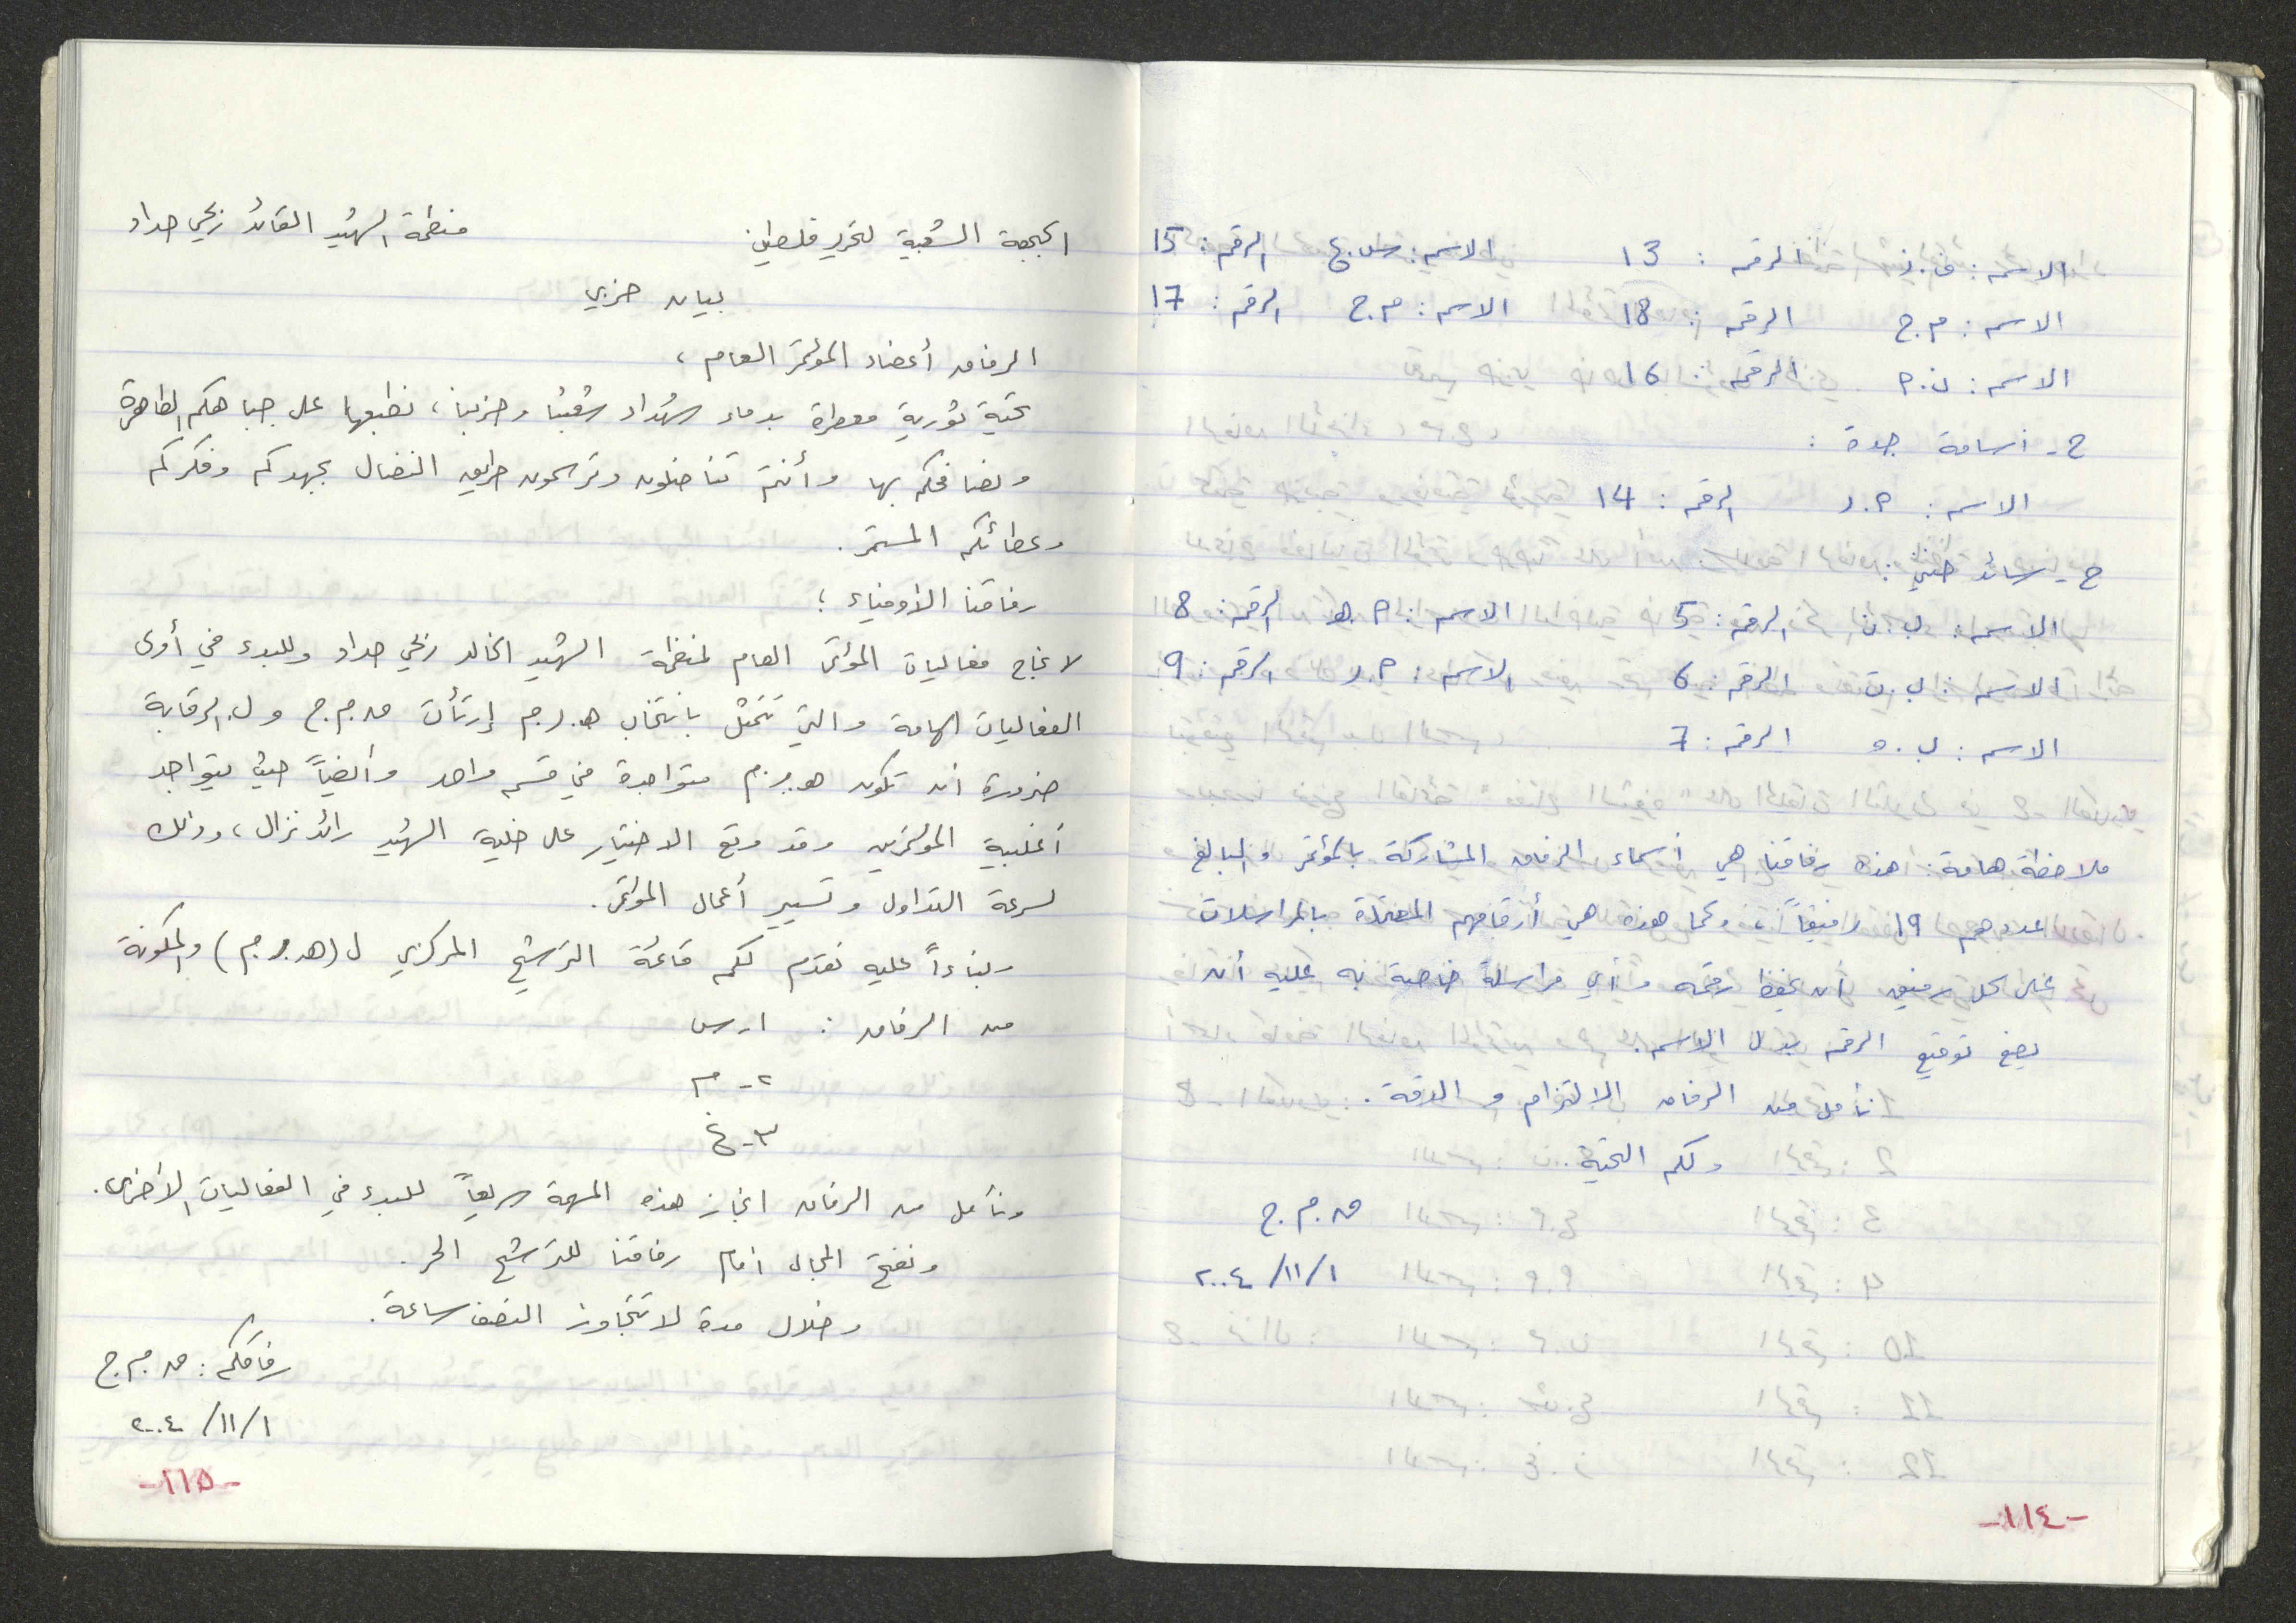 الاسم: ف.ز الرقم: 13 الاسم: س.ع الرقم: 15
الاسم: م.ج الرقم: 18 الاسم: م.ج الرقم: 17
الاسم: ن.م الرقم: 16
ح- أسامة جدة:
الاسم: م.ر الرقم: 14
ح- سائد حنني:
الاسم: ل.ن الرقم: 5 الاسم: م.هـ الرقم: 8
الاسم: ل.ن الرقم: 6 الاسم: م.ر الرقم: 9
الاسم: ل.و الرقم: 7
ملاحظة هامة: هذه رفاقنا هي أسماء الرفاق المشاركة بالمؤتمر والبالغ
عددهم ١٩ رفيقاً، وكما هذه هي أرقامهم المعتمدة بالمراسلات
على كل رفيق أن يحفظ رقمه وأي مراسلة خاصة به عليه أن
يضع توقيع الرقم بدل الاسم.
نأمل من الرفاق الالتزام و الدقة.
ولكم التحية..
ق.م.ج
١/١١/٢٠٠٤
-١١٤-
الجبهة الشعبية لتحرير فلسطين منظمة الشهيد القائد زكي حداد
بيان حزبي
الرفاق أعضاء المؤتمر العام،
تحية ثورية معطرة بدماء شهداء شعبنا وحزبنا، نطبعها على جباهكم الطاهرة
ونصافحكم بها وأنتم تناضلون وترسمون طريق النضال بجهدكم وفكركم
وعطائكم المستمر.
رفاقنا الأوفياء؛
لانجاح فعاليات المؤتمر العام لمنظمة الشهيد الخالد زكي حداد وللبدء في أولى
الفعاليات الهامة والتي تتمثل بانتخاب هـ.ر.م إرتأت ق.م.ج و ل.الرقابة
ضرورة أن تكون هـ.ر.م متواجدة في قسم واحد وأيضاً حيث يتواجد
أغلبية المؤتمرين وقد وقع الاختيار على خلية الشهيد رائد نزال، وذلك
لسرعة التداول وتسيير أعمال المؤتمر.
وبناءاً عليه نقدم لكم قائمة الترشيح المركزي ل (هـ.ر.م) والمكونة
من الرفاق: ١- س
٢- م
٣- ع
ونأمل من الرفاق انجاز هذه المهمة سريعاً للبدء في الفعاليات الأخرى.
ونفتح المجال أمام رفاقنا للترشح الحر.
وخلال مدة لا تتجاوز النصف ساعة.
رفاقكم: ق.م.ج
١/١١/٢٠٠٤
-١١٥-